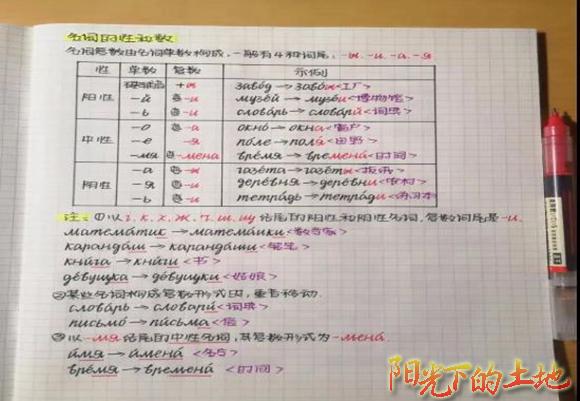 名词的性和数
名词复数由名词单数构成,一般有4种词尾:-ы.-и.-а.-я
性 单数 复数 示例
阳性 +ы завóд→завóды<工厂>
-й -и музéй→музéи<博物馆>
-ь -и словáрь→словари́<词典>
中性 -о -а окнó→óкна<窗户>
-е -я пóле→поля́<田野>
-мя -мена врéмя→временá<时间>
阴性 -а -ы газéта→газéты<报纸>
-я -и дерéвня→дерéвни<农村>
-ь -и тетрáдь→тетрáди<练习本>
注:①以г.к.х.ж.ч.ш.щ结尾的阳性和阴性名词,复数词尾是-и.
математик→математики<数学家>
карандáш→карандаши́<铅笔>
кни́га→кни́ги<书>
дéвушка→дéвушки<姑娘>
②某些名词构成复数形式时,重音移动.
словáрь→словари́<词典>
письмó→пи́сьма<信>
③以-мя结尾的中性名词,其复数形式为-менá.
и́мя→именá<名字>
врéмя→временá<时间>
阳光下的土地